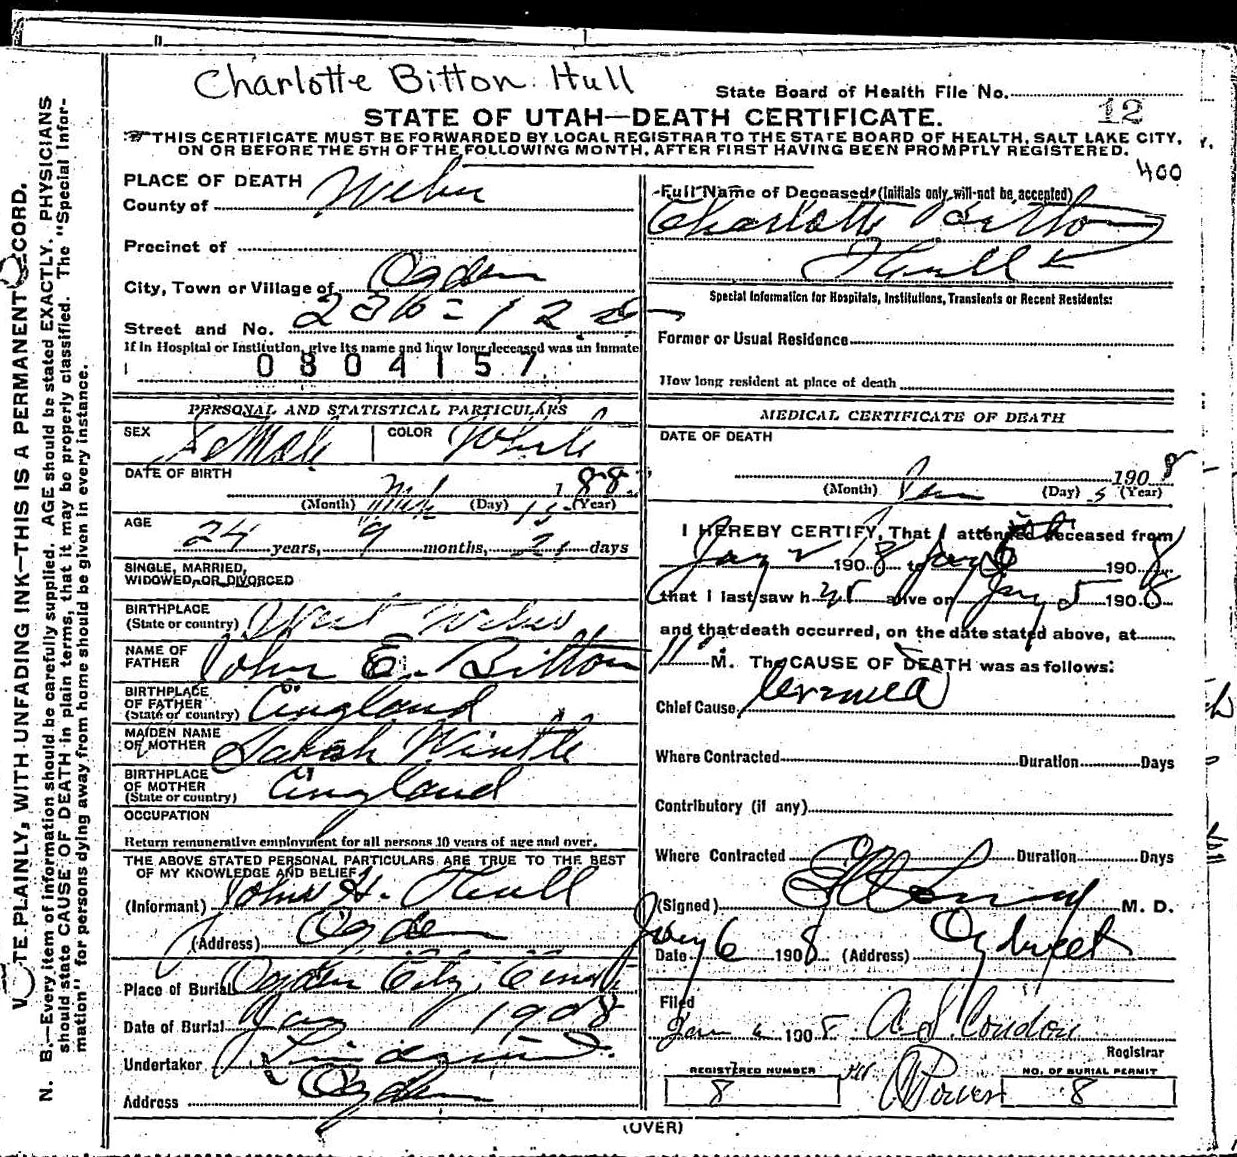 Charlotte Bitton Hull
State Board of Health File No.
12
STATE OF UTAH—DEATH CERTIFICATE.
THIS CERTIFICATE MUST BE FORWARDED BY LOCAL REGISTRAR TO THE STATE BOARD OF HEALTH, SALT LAKE CITY,
ON OR BEFORE THE 5TH OF THE FOLLOWING MONTH, AFTER FIRST HAVING BEEN PROMPTLY REGISTERED.
400
PLACE OF DEATH
County of Weber
Precinct of
City, Town or Village of Ogden
Street and No. 236-12
If in Hospital or Institution, give its name and how long deceased was an inmate
0804157
PERSONAL AND STATISTICAL PARTICULARS
SEX Female COLOR White
DATE OF BIRTH
(Month) Mch (Day) 15 (Year) 188
AGE
24 years, 9 months, 21 days
SINGLE, MARRIED,
WIDOWED, OR DIVORCED
BIRTHPLACE
(State or country) West Weber
NAME OF
FATHER John E. Bitton
BIRTHPLACE
OF FATHER
(State or country) England
MAIDEN NAME
OF MOTHER Sarah Wintle
BIRTHPLACE
OF MOTHER
(State or country) England
OCCUPATION
Return remunerative employment for all persons 10 years of age and over.
THE ABOVE STATED PERSONAL PARTICULARS ARE TRUE TO THE BEST
OF MY KNOWLEDGE AND BELIEF
(Informant) John H. Hull
(Address) Ogden
Place of Burial Ogden City
Date of Burial Jany 1908
Undertaker
Address Ogden
Full Name of Deceased (Initials only will not be accepted)
Charlotte Bitton
Hull
Special Information for Hospitals, Institutions, Transients or Recent Residents:
Former or Usual Residence
How long resident at place of death
MEDICAL CERTIFICATE OF DEATH
DATE OF DEATH
1908
(Month) Jan (Day) 5 (Year)
I HEREBY CERTIFY, That I attended deceased from
Jany 2 1908 to Jany 5 1908
that I last saw her alive on Jany 5 1908
and that death occurred, on the date stated above, at
11 M. The CAUSE OF DEATH was as follows:
Chief Cause Uremia
Where Contracted Duration Days
Contributory (if any)
Where Contracted Duration Days
(Signed) M. D.
Date Jany 6 1908 (Address) Ogden
Filed
Jan 6 1908
Registrar
REGISTERED NUMBER
8
NO. OF BURIAL PERMIT
8
(OVER)
WRITE PLAINLY, WITH UNFADING INK—THIS IS A PERMANENT RECORD.
N. B.—Every item of information should be carefully supplied. AGE should be stated EXACTLY. PHYSICIANS
should state CAUSE OF DEATH in plain terms, that it may be properly classified. The "Special Infor-
mation" for persons dying away from home should be given in every instance.